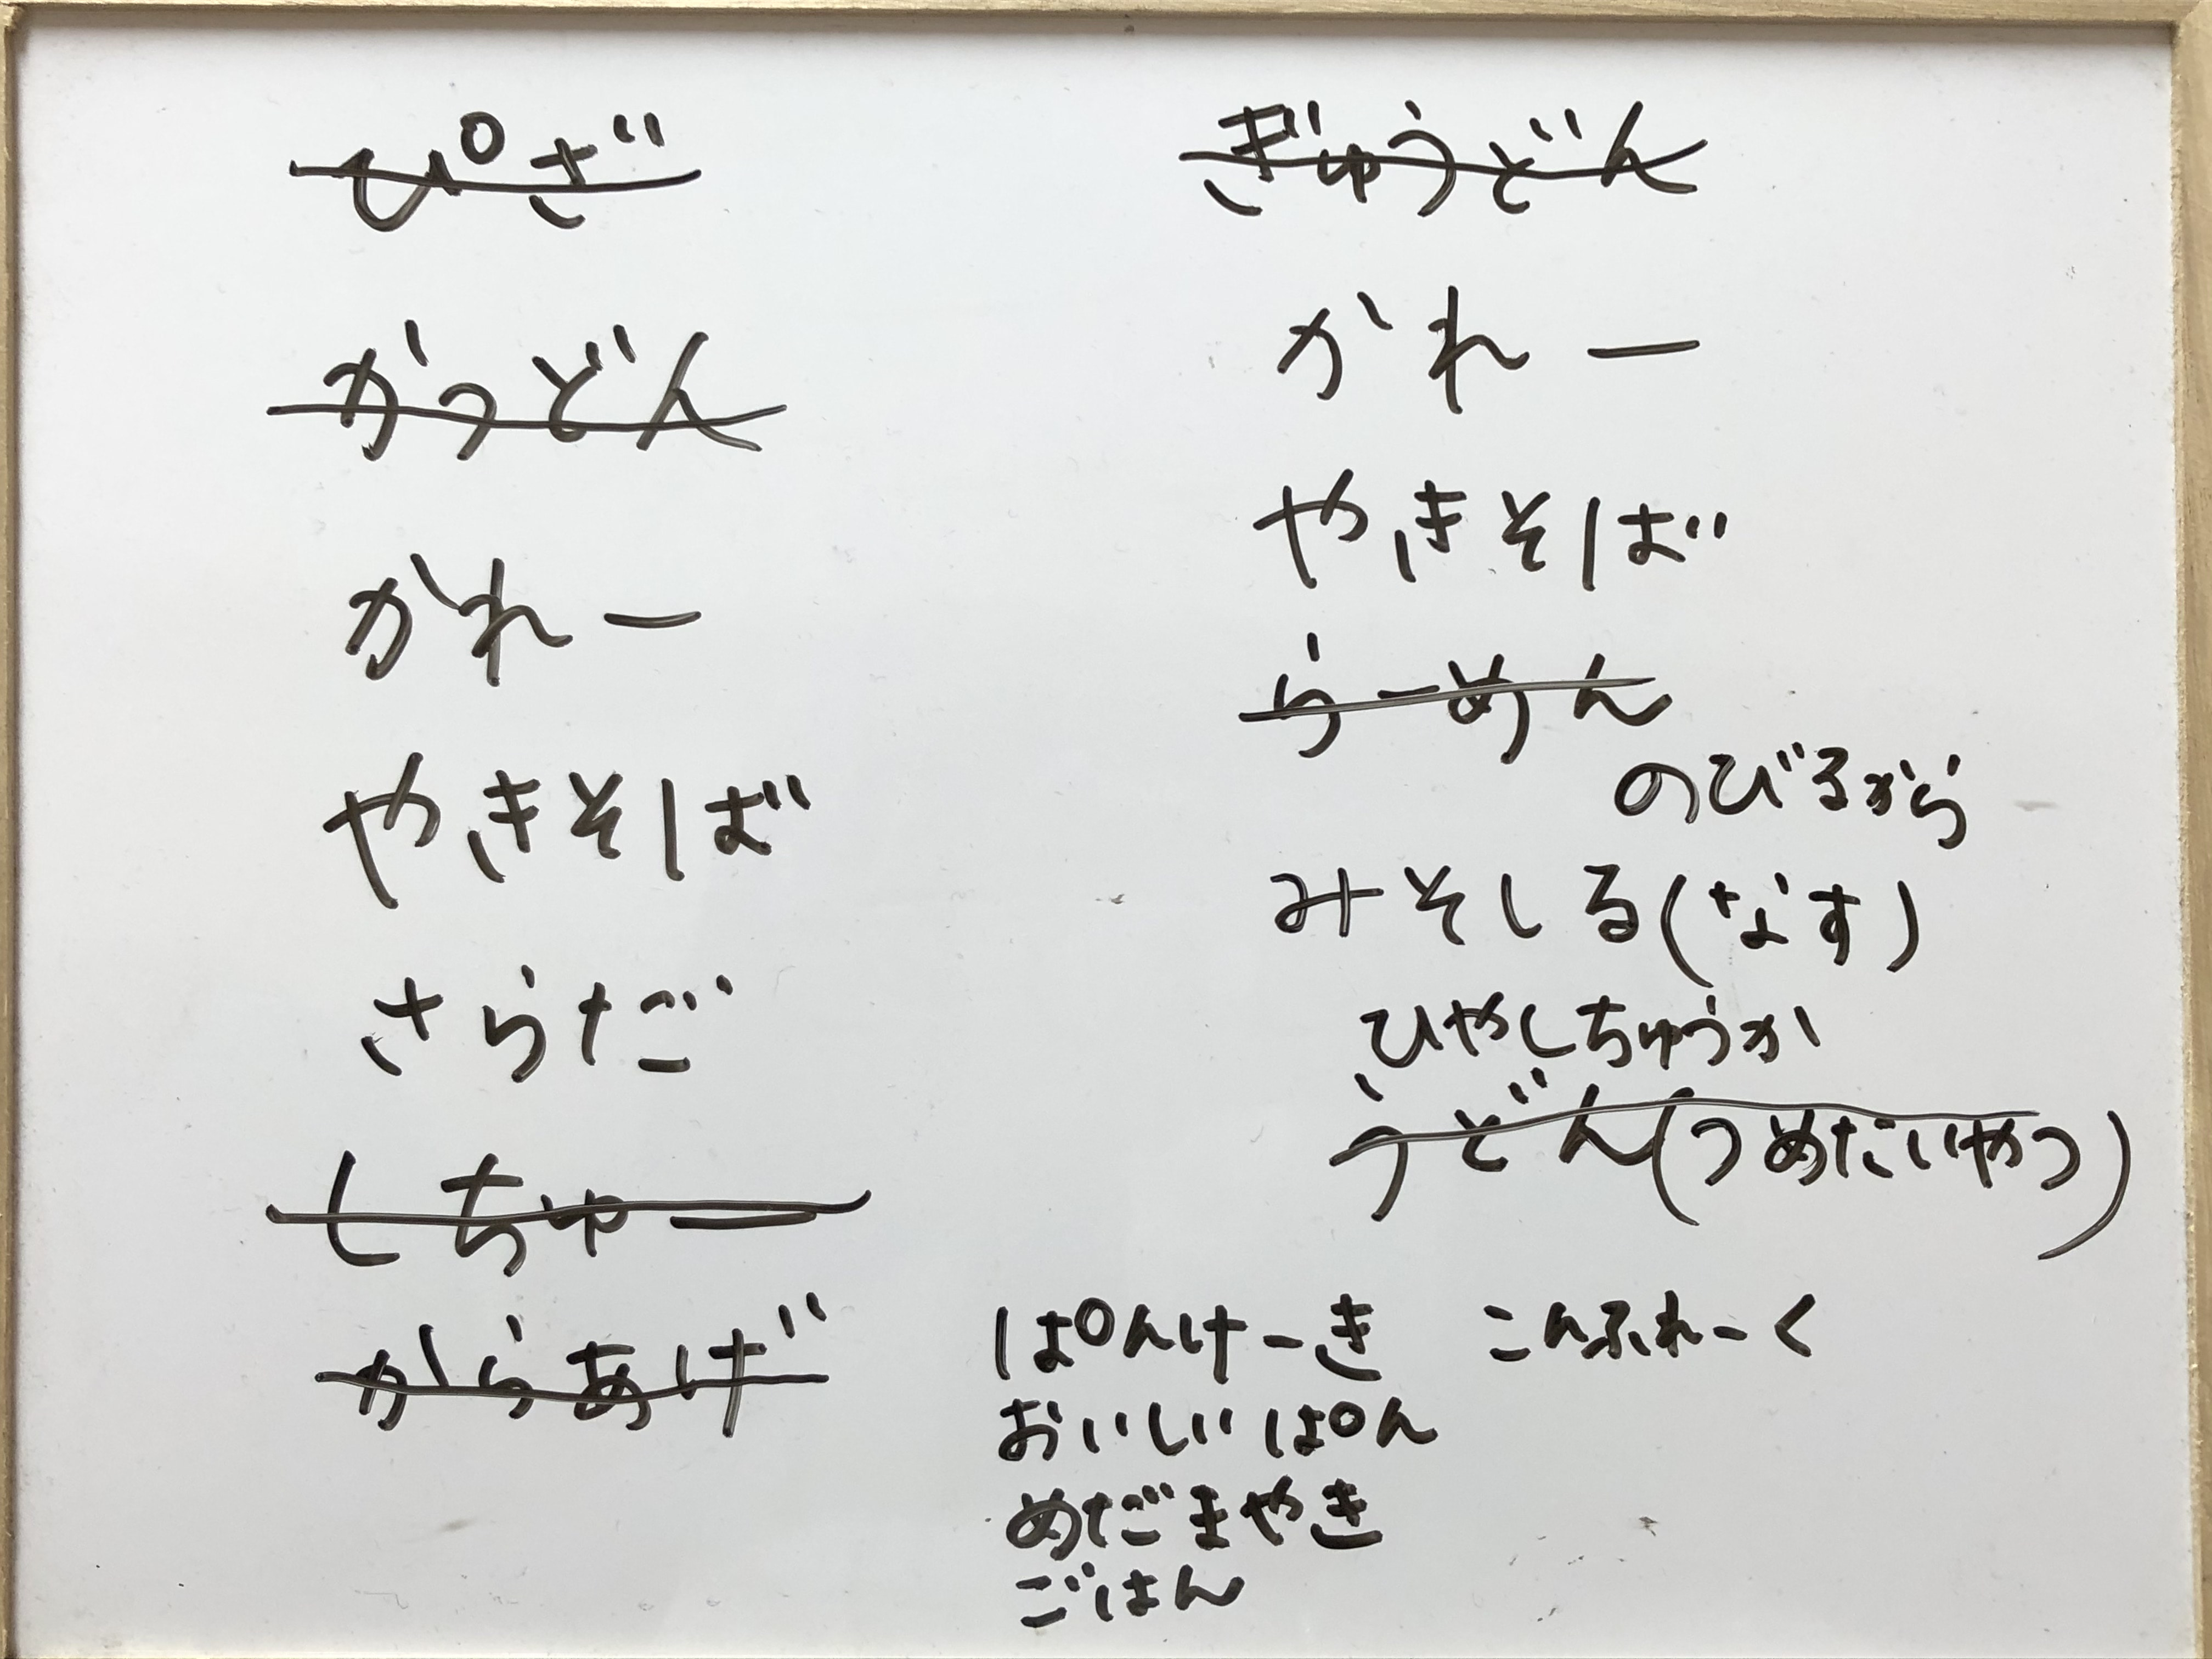 ぴざ
かつどん
かれー
やきそば
さらだ
しちゅー
からあげ
ぎゅうどん
かれー
やきそば
らーめん
のびるから
みそしる(なす)
ひやしちゅうか
うどん(つめたいやつ)
ぱんけーき こんふれーく
おいしいぱん
めだまやき
ごはん